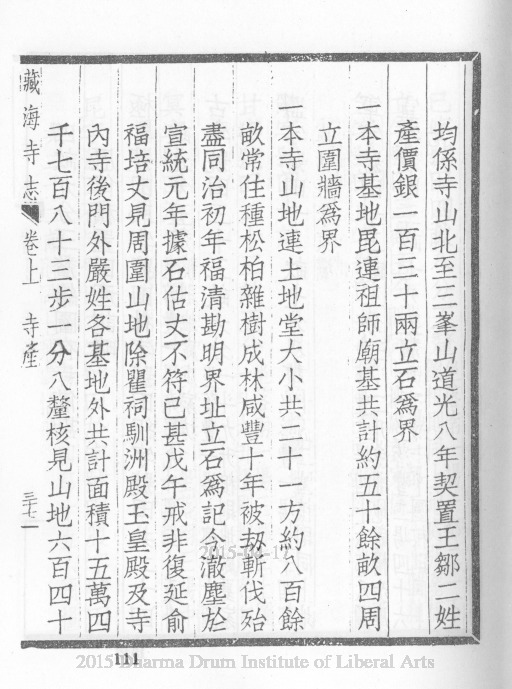 均係寺山北至三峯山道光八年契置王鄒二姓
產價銀一百三十兩立石爲界
一本寺基地毘連祖師廟基共計約五十餘畝四周
立圍牆爲界
一本寺山地連土地堂大小共二十一方約八百餘
畝常住種松柏雜樹成林咸豐十年被刼斬伐殆
盡同治初年福清勘明界址立石爲記今澈塵於
宣統元年據石估丈不符已甚戊午戒非復延俞
福培丈見周圍山地除瞿祠馴洲殿玉皇殿及寺
內寺後門外嚴姓各基地外共計面積十五萬四
千七百八十三步一分八釐核見山地六百四十
藏海寺志 卷上 寺產 三十七
111
2015 Dharma Drum Institute of Liberal Arts